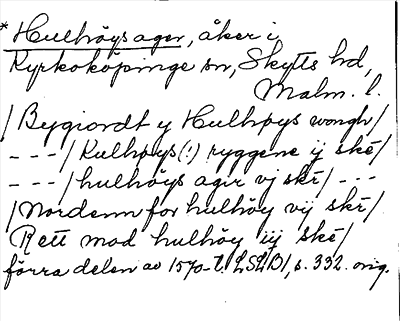 * Hulhöys ager, åker i
Kyrkoköpinge sn, Skytts hd,
Malm. l.
/Bygiordt y Hulhøys wongh/
---/Kulhøys(!) ryggene ij ske/
---/hulhöys agir vj ske/---
/Nordenn for hulhöy vij ske/
Rett mod hulhöy iij ske/
förra delen av 1570-t. LSLB1, s. 332. orig.